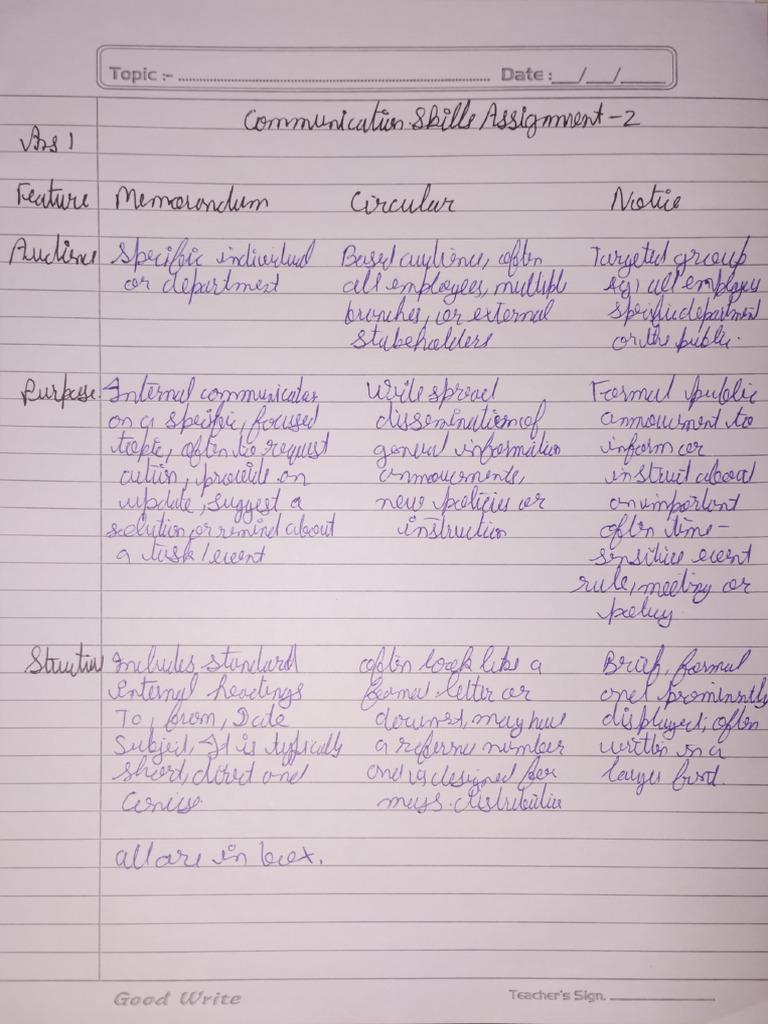 Topic :- Date : __/__/____
Communication Skills Assignment - 2
Ans 1
Feature Memorandum Circular Notice
Audience Specific individual Based audience, often Targeted group
or department all employees, multiple eg, all employees
branches, or external specific department
stakeholders or the public.
Purpose Internal communication Wide spread Formal public
on a specific, focused dissemination of announcement to
topic, often to request general information inform or
action, provide an announcements, instruct about
update, suggest a new policies or an important
solution, or remind about instruction often time-
a task / event sensitive event
rule, meeting or
policy
Structure Includes standard often look like a Brief, formal
Internal headings formal letter or and prominently
To, from, Date may have displayed, often
Subject, It is typically a reference number written in a
short, direct and and is designed for larger font.
Concise. mass distribution
all are in box.
Good Write Teacher's Sign. ____________